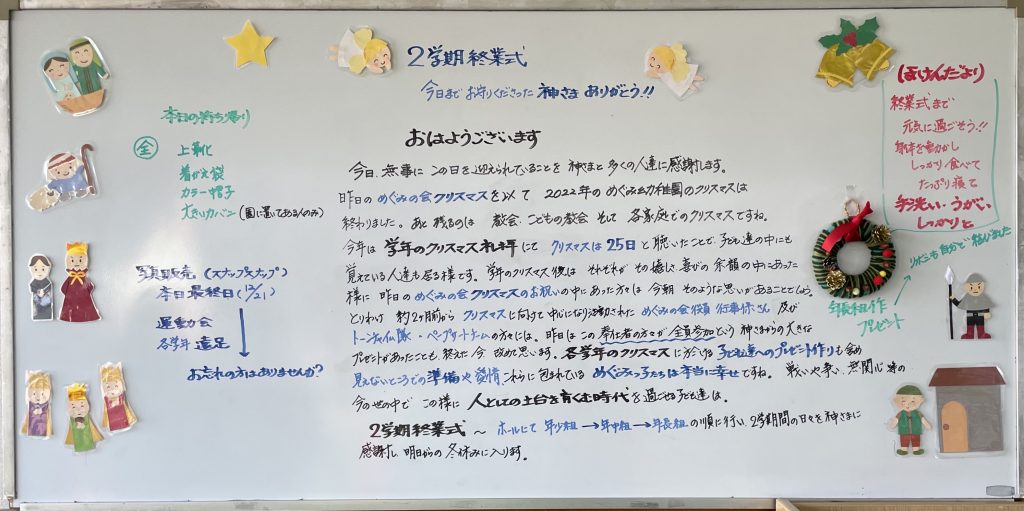 2学期終業式
今日までお守りくださった 神さま ありがとう!!
本日の持ち帰り
全 上靴
着がえ袋
カラー帽子
大きいカバン(園に置いてある人のみ)
写真販売(スナップ&スナップ)
本日最終日(12/21)
運動会
各学年 遠足
お忘れの方はありませんか?
おはようございます
今日、無事に この日を迎えられていることを 神さまと多くの人達に感謝します。
昨日の めぐみの会クリスマスを以て 2022年の めぐみ幼稚園のクリスマスは
終わりました。あと 残るのは 教会、こどもの教会 そして 各家庭でのクリスマスですね。
今年は 学年のクリスマス礼拝にて クリスマスは25日と聴いたことで、子ども達の中にも
覚えている人達も居る様です。学年のクリスマス後は それぞれが その嬉しさ 喜びの 余韻の中にあった
様に 昨日の めぐみの会クリスマスのお祝いの中にあった方々は 今朝 そのような思いがあることでしょう。
とりわけ 約2ヶ月前から クリスマスに向けて 中心になり活動された めぐみの会役員 行事係さん 及び
トーンチャイム隊・ページェントチームの方々には。昨日は この奉仕者の方々が 全員参加という 神さまからの大きな
プレゼントがあったことも、終えた今 改めて思います。各学年のクリスマスにおける 子ども達へのプレゼント作りも含め
見えないところでの準備や 愛情 これらに包まれている めぐみっ子たちは本当に幸せですね。戦いや争い、無関心 等の
今の世の中で この様に 人としての土台を育くむ時代を過ごせる子ども達は。
2学期終業式 ～ ホールにて 年少組→年中組→年長組の順に行い、2学期間の日々を神さまに
感謝し、明日からの 冬休みに入ります。
(ほけんだより)
終業式まで
元気に過ごそう!!
身体を動かし
しっかり食べて
たっぷり寝て
手洗い・うがい、
しっかりと
リボンも自分で結びました
年長組作
プレゼント